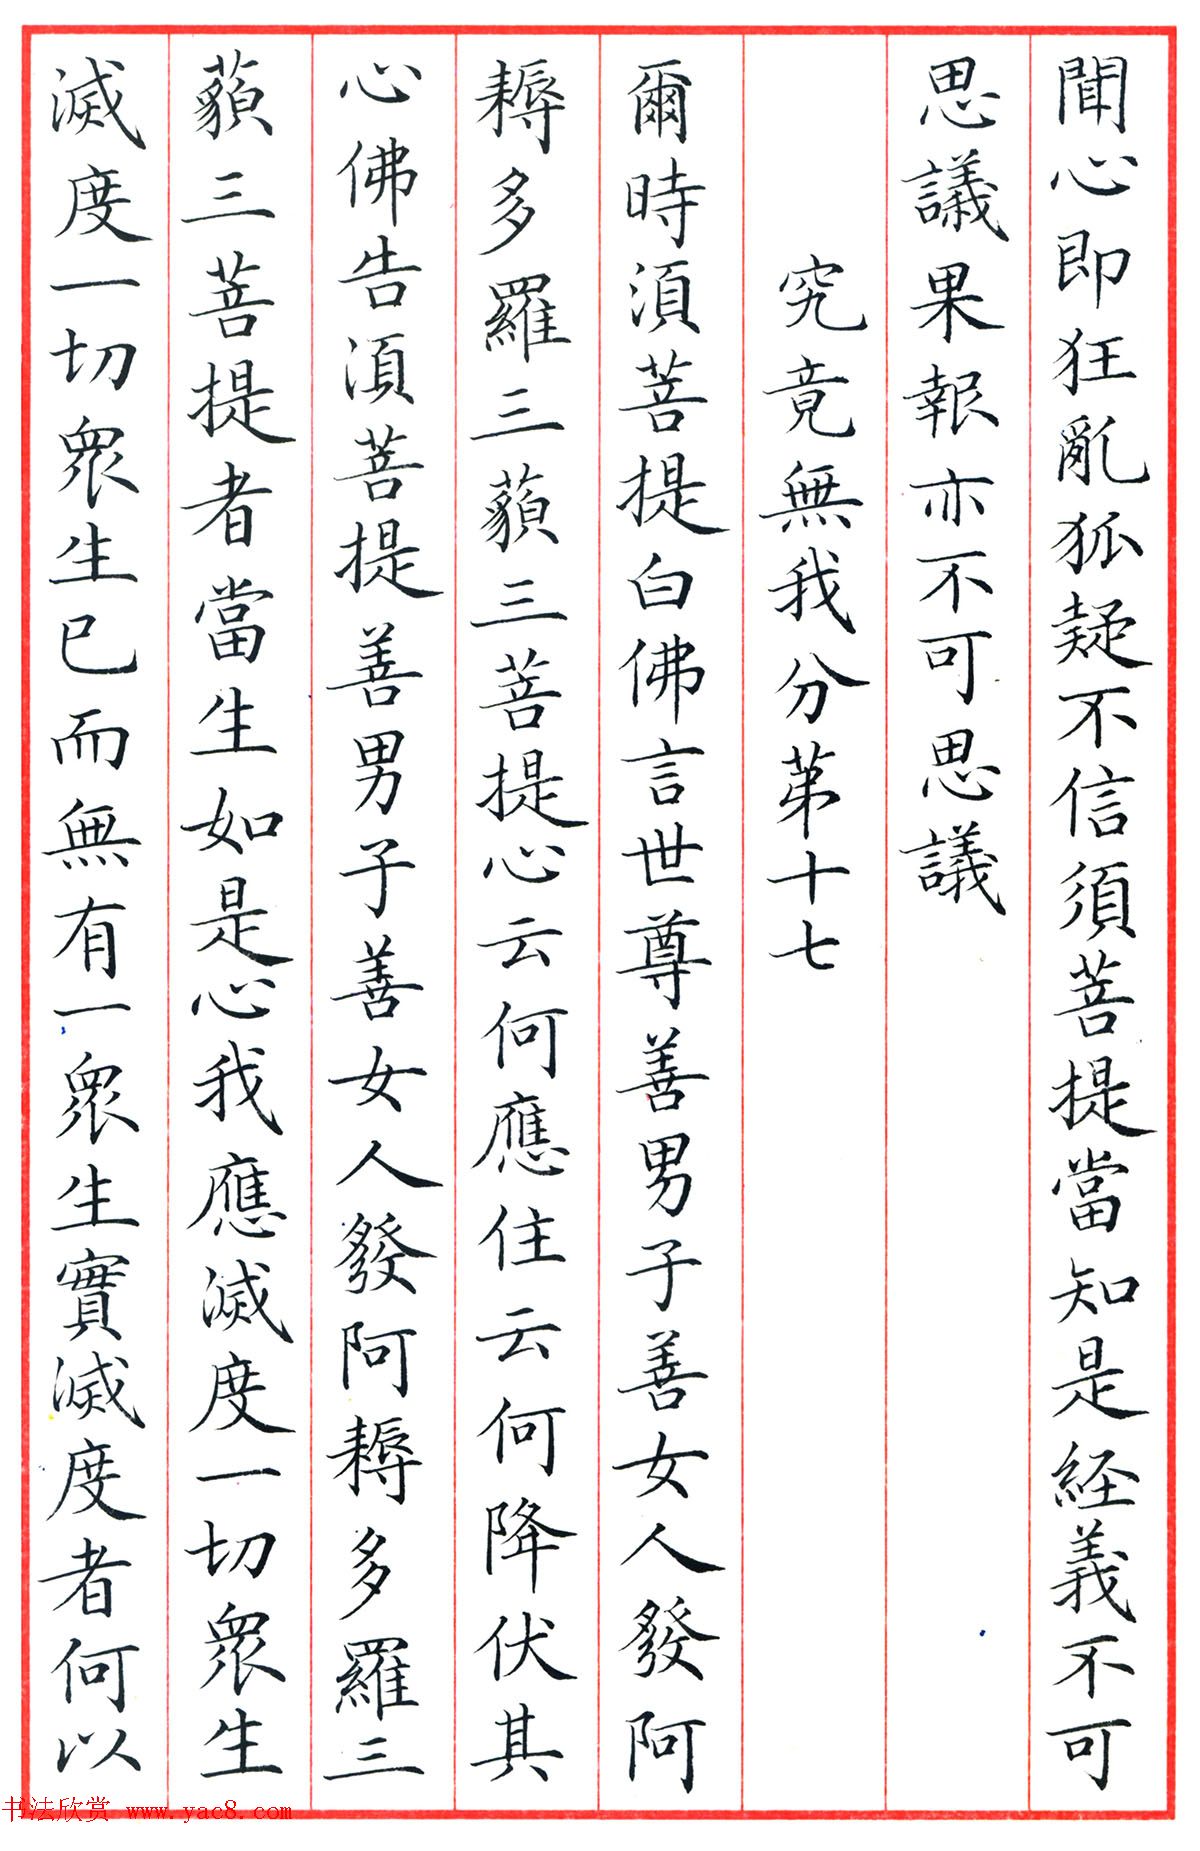 聞心即狂亂狐疑不信須菩提當知是経義不可
思議果報亦不可思議
究竟無我分苐十七
爾時湏菩提白佛言世尊善男子善女人發阿
耨多羅三藐三菩提心云何應住云何降伏其
心佛告湏菩提善男子善女人發阿耨多羅三
藐三菩提者當生如是心我應滅度一切眾生
滅度一切眾生已而無有一眾生實滅度者何以
书法欣赏 www.yac8.com